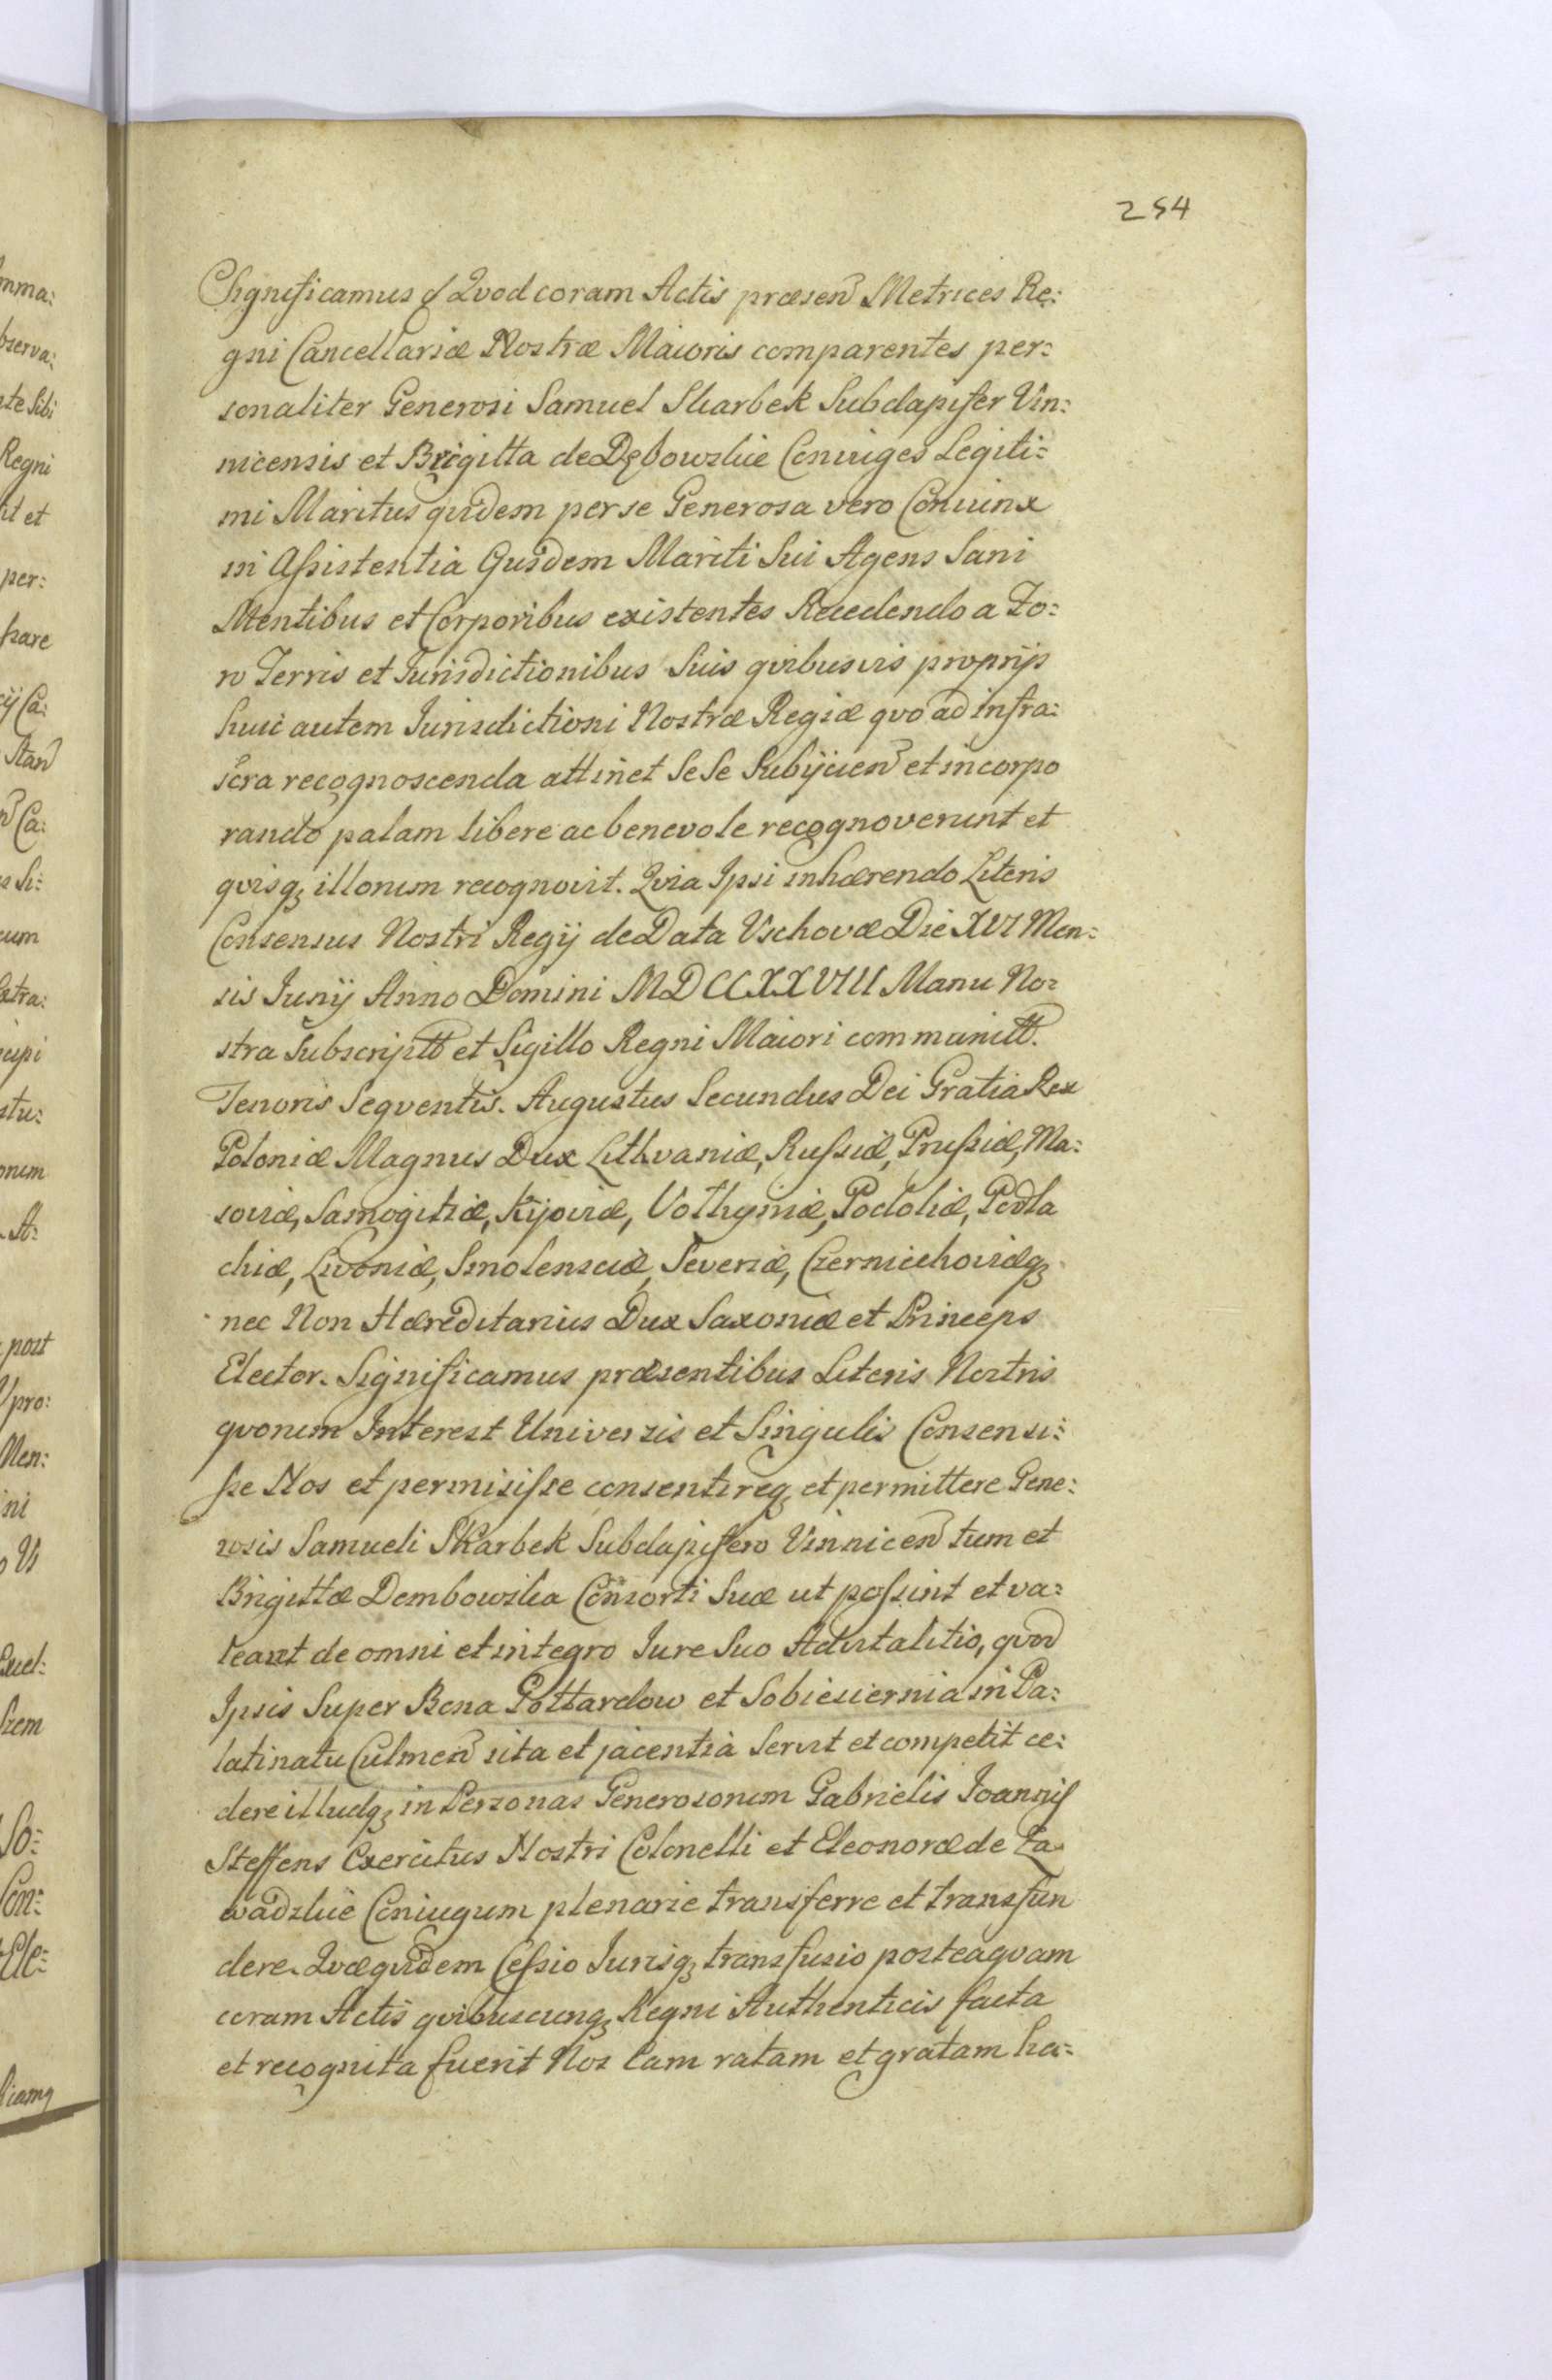 254
Significamus & Qvod coram Actis præsen Metrices Re:
gni Cancellariæ Nostræ Maioris comparentes per:
sonaliter Generosi Samuel Skarbek Subdapifer Vin:
nicensis et Brigitta de Dębowskie Coniuges Legiti:
mi Maritus qvidem per se Generosa vero Coniunx
in Assistentia Eiusdem Mariti Sui Agens Sani
Mentibus et Corporibus existentes Recedendo a Fo:
ro Terris et Iurisdictionibus Suis qvibusvis proprijs
huic autem Iurisdictioni Nostræ Regiæ qvo ad infra:
scra recognoscenda attinet Se Se Subijcien et incorpo
rando palam libere ac benevole recognoverunt et
qvisq; illorum recognovit. Qvia Ipsi inhærendo Literis
Consensus Nostri Regij de Data Vschovæ Die XVI Men:
sis Iunij Anno Domini MDCCXXVIII Manu No:
stra Subscriptt et Sigillo Regni Maiori communitt.
Tenoris Seqventis. Augustus Secundus Dei Gratia Rex
Poloniæ Magnus Dux Lithvaniæ, Russiæ, Prussiæ, Ma:
soviæ, Samogitiæ, Kijoviæ, Volhyniæ, Podoliæ, Podla
chiæ, Livoniæ, Smolensciæ, Severiæ, Czerniechoviæq;
nec Non Hæreditarius Dux Saxoniæ et Princeps
Elector. Significamus præsentibus Literis Nostris
qvorum Interest Universis et Singulis Consensi:
sse Nos et permisisse consentireq; et permittere Gene:
rosis Samueli Skarbek Subdapifero Vinnicen tum et
Brigittæ Dembowska Consorti Suæ ut possint et va:
leant de omni et integro Iure Suo Advitalitio, qvod
Ipsis Super Bona Pottardow et Sobiesiernia in Pa:
latinatu Culmen sita et jacentia Servit et competit ce:
dere illudq; in Personas Generosorum Gabrielis Ioannis
Steffens Exercitus Nostri Colonelli et Eleonoræ de Za
wadzkie Coniugum plenarie transferre et transfun
dere. Qvæqvidem Cessio Iurisq; transfusio posteaqvam
coram Actis qvibuscunq; Regni Authenticis facta
et recognita fuerit Nos Eam ratam et gratam ha: